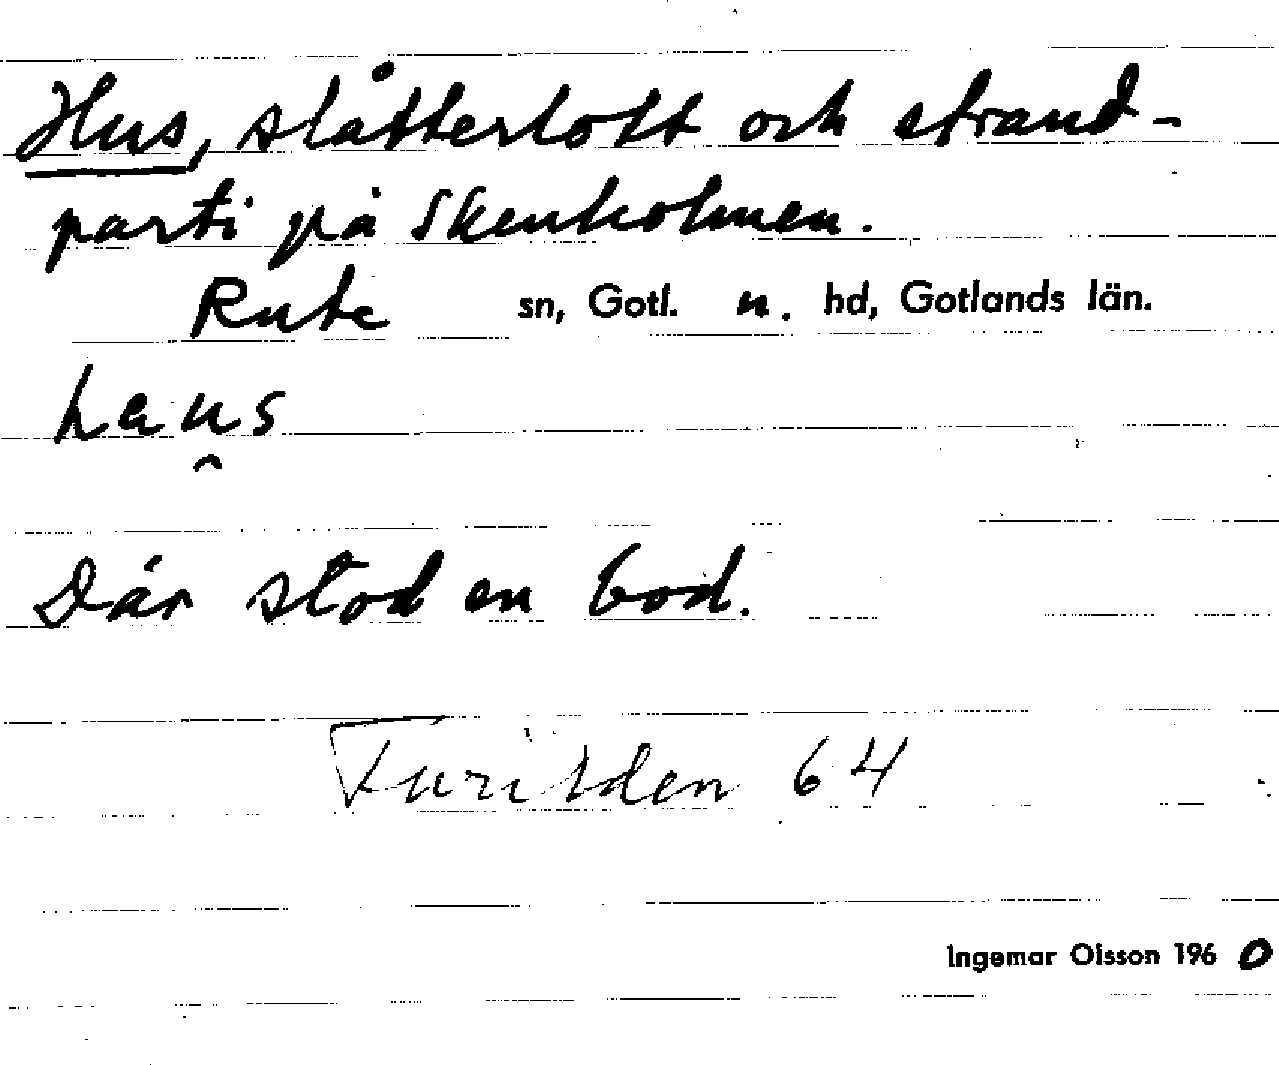 Hus, slåtterlott och strand-
parti på Skenholmen.
Rute sn, Gotl. n. hd, Gotlands län.
haus
Där stod en bod.
Furilden 64
Ingemar Olsson 1960